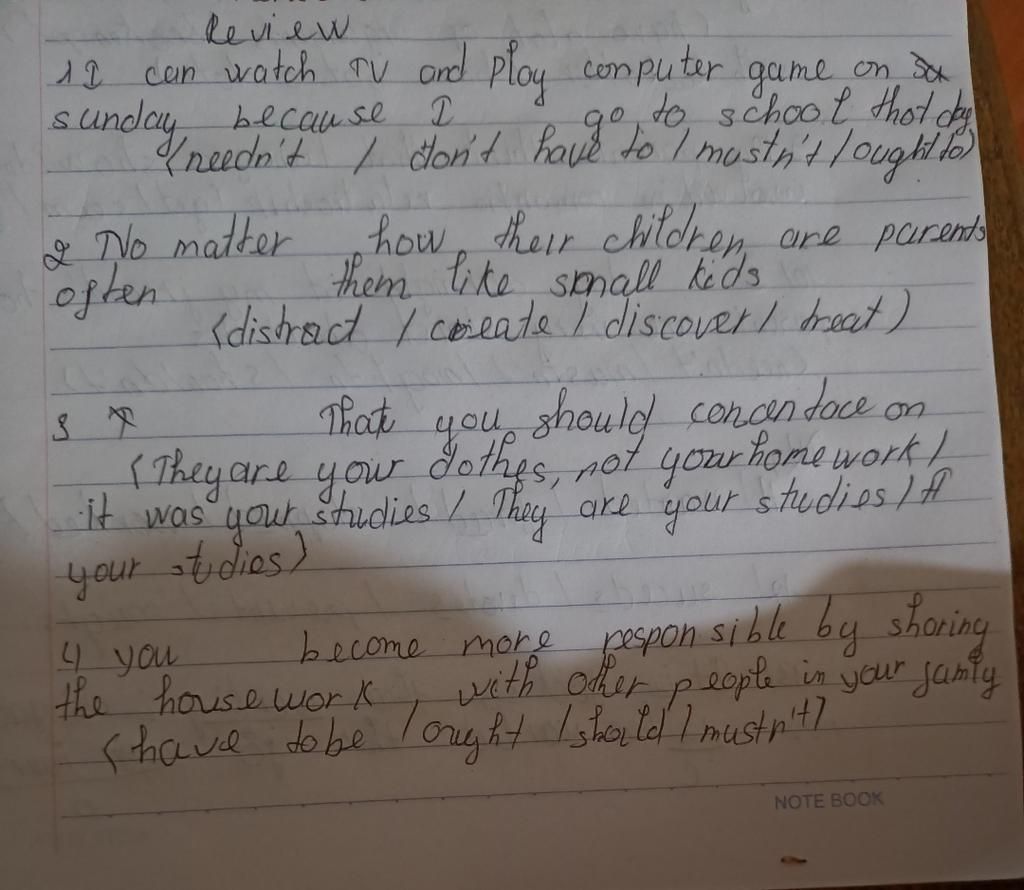 Review
1 I can watch TV and play computer game on
sunday, because I go to school that day
(needn't / don't have to / mustn't / ought to)
2 No matter how their children are parents
often them like small kids
(distract / create / discover / treat)
3 That you should concentace on
(They are your clothes, not your homework /
it was your studies / They are your studies / It
your studies)
4 you become more responsible by sharing
the housework, with other people in your family
(have to be / ought / should / mustn't)
NOTE BOOK